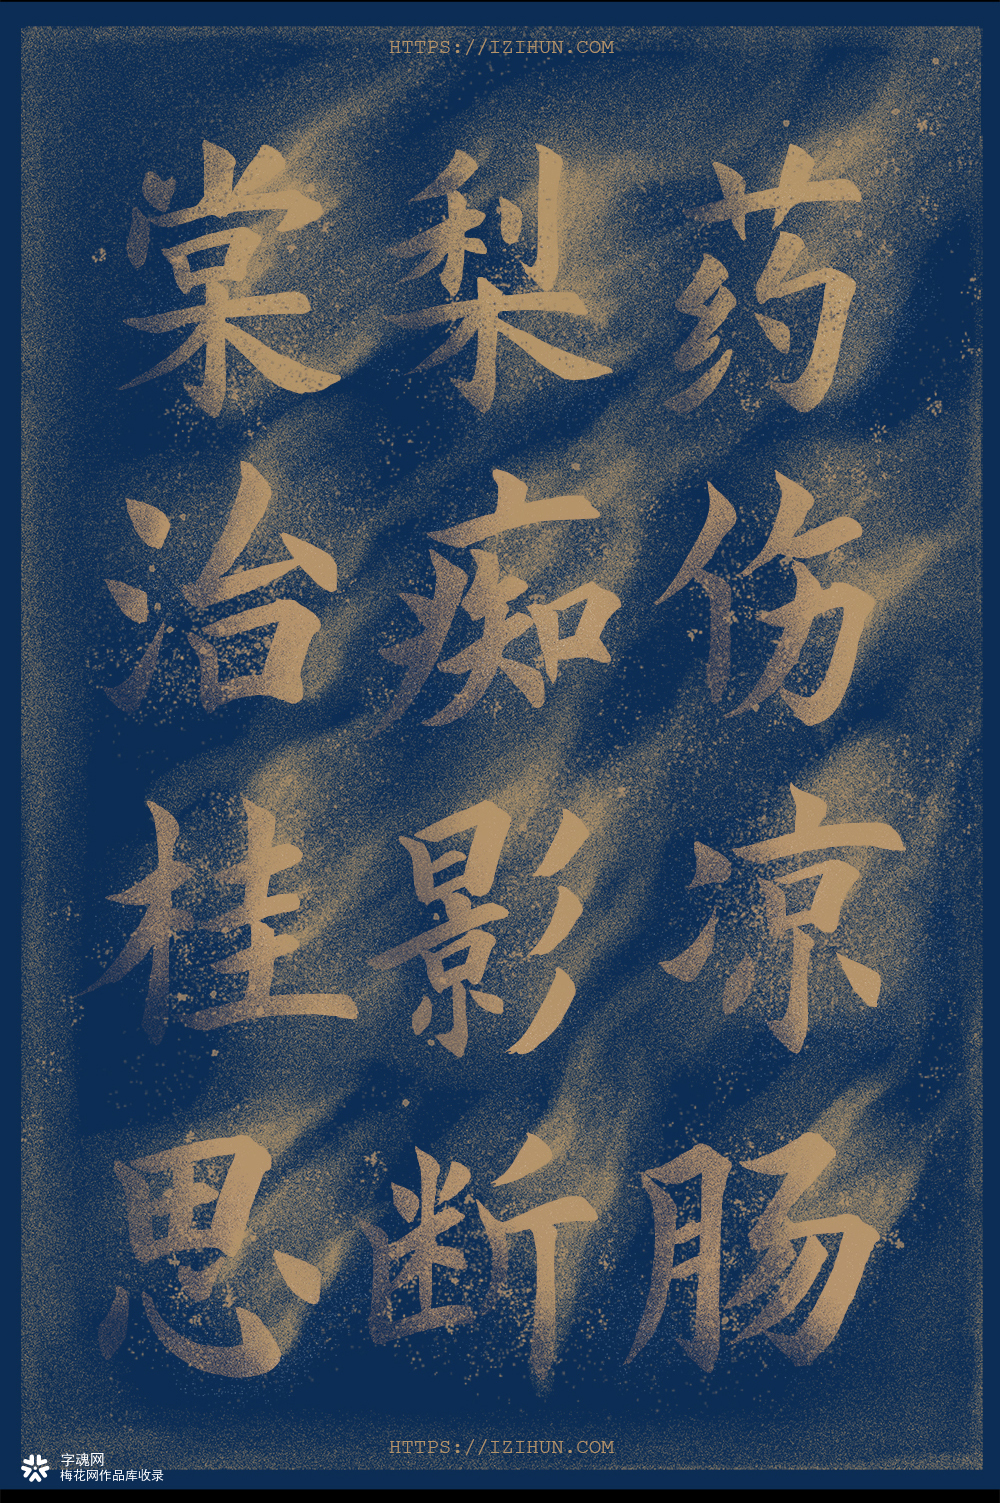 HTTPS://IZIHUN.COM
棠梨药
治痴伤
桂影凉
思断肠
HTTPS://IZIHUN.COM
字魂网
梅花网作品库收录